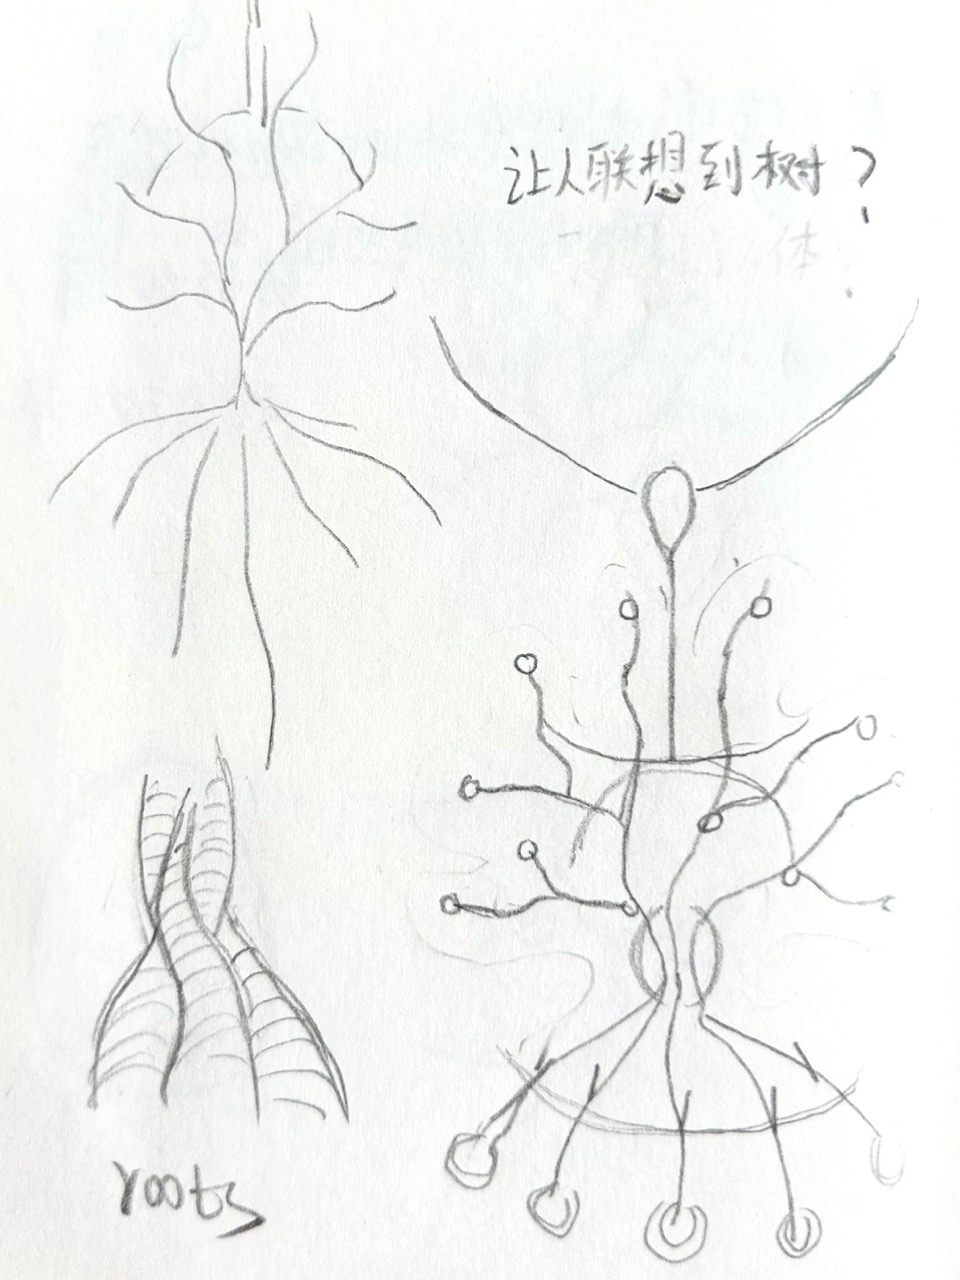 让人联想到树?
体?
roots